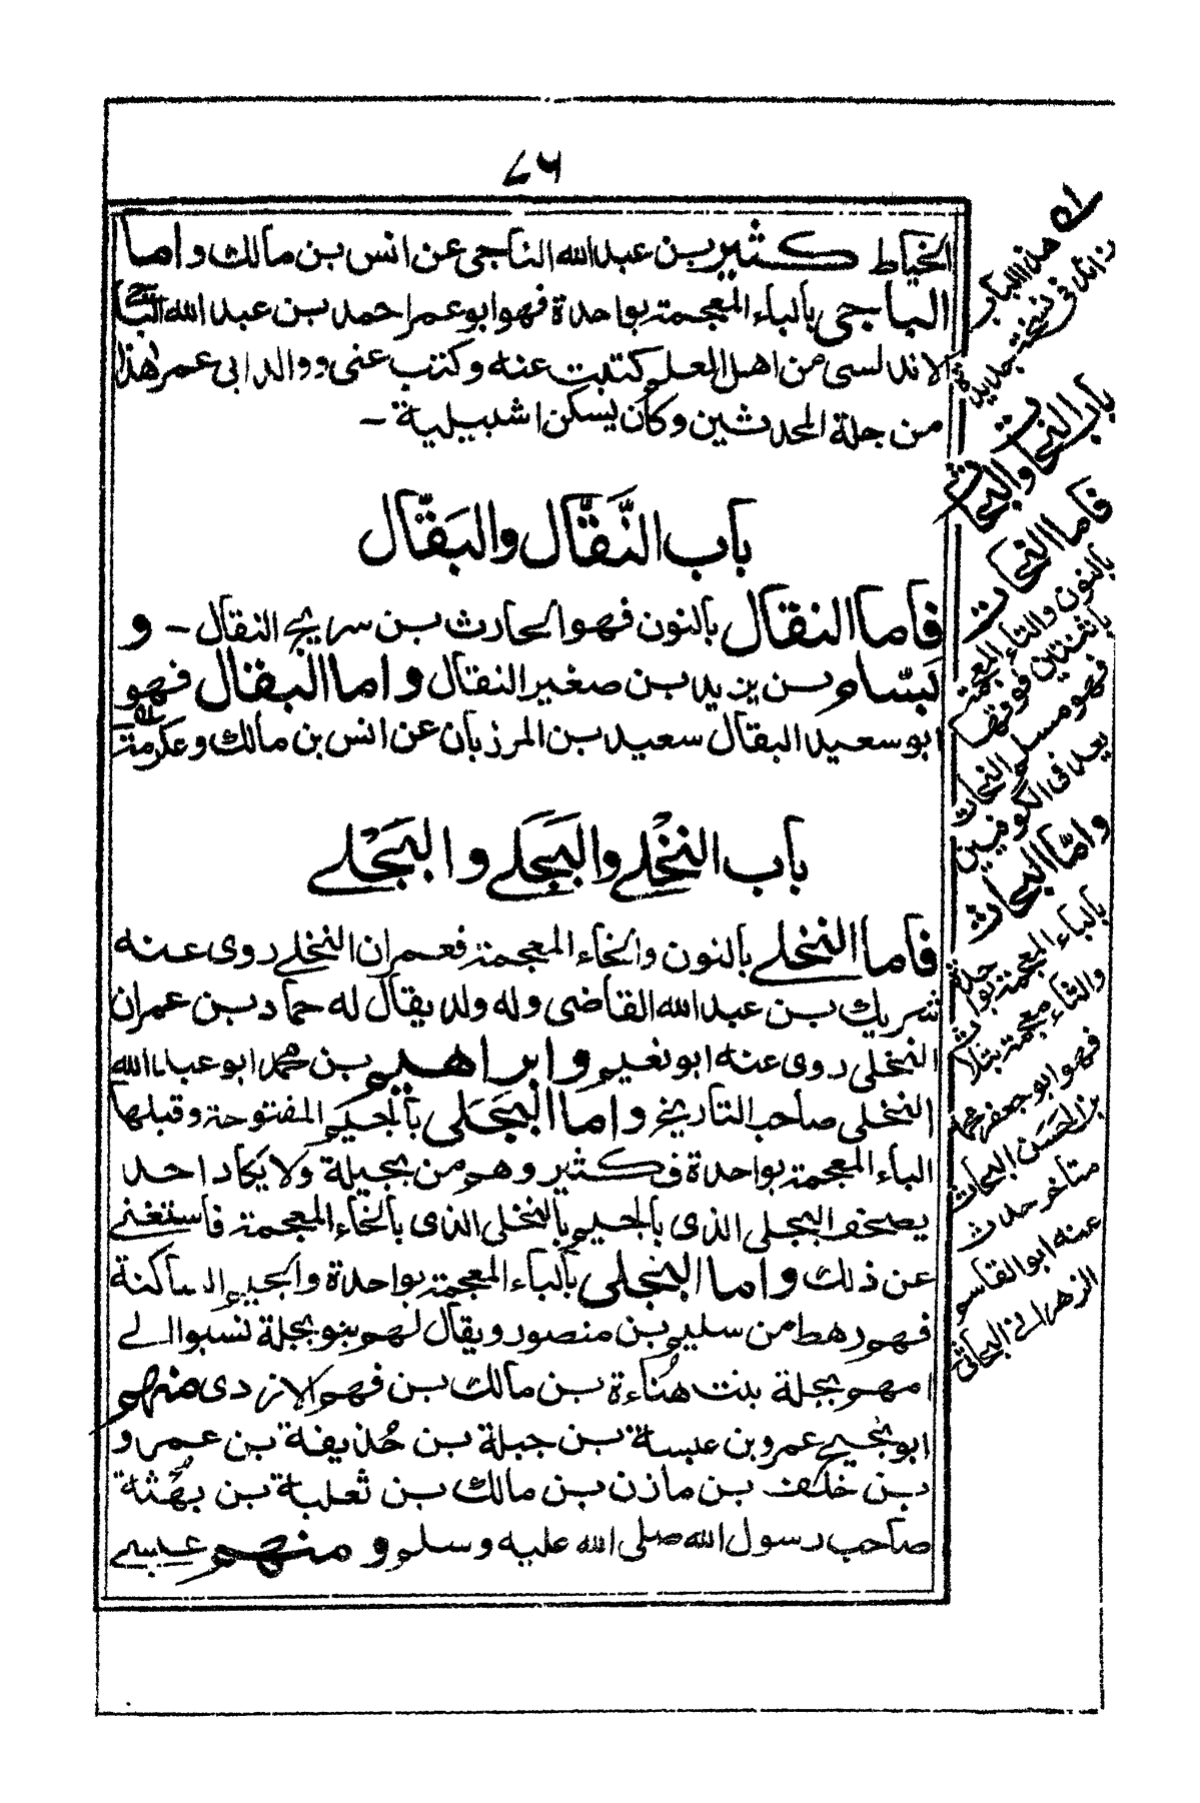 ٧٦
الخياط كثير بن عبدالله الناجى عن انس بن مالك واما
الباجى بالباء المعجمة بواحدة فهو ابو عمر احمد بن عبد الله
الاندلسى من اهل العلم كتبت عنه وكتب عنى ووالد ابى عمر هذا
من جلة المحدثين وكان يسكن اشبيلية -
باب النَّقَّال والبَقّال
فاما النقال بالنون فهو الحارث بن سريج النقال - و
بَسّام بن يزيد بن صغير النقال واما البقال فهو
ابو سعيد البقال سعيد بن المرزبان عن انس بن مالك وعكرمة
باب النخْلي والبَجَلي والبَجْلي
فاما النخلي بالنون والخاء المعجمة فعمران النخلي روى عنه
شريك بن عبدالله القاضى وله ولد يقال له حماد بن عمران
النخلى روى عنه ابو نعيم وابراهيم بن محمد ابو عبدالله
النخلى صاحب التاريخ واما البَجَلى بالجيم المفتوحة وقبلها
الباء المعجمة بواحدة فكثير وهم من بجيلة ولا يكاد احد
يصحف البجلى الذى بالجيم بالنخلى الذى بالخاء المعجمة فاستغنى
عن ذلك واما البجلى بالباء المعجمة بواحدة والجيم الساكنة
فهم رهط من سليم بن منصور ويقال لهم بنو بجلة نسبوا الى
امهم بجلة بنت هُناءة بن مالك بن فهم الازدى منهم
ابو نجيح عمرو بن عبسة بن جبلة بن حُذيفة بن عمرو
بن خلف بن مازن بن مالك بن ثعلبة بن بُهثة
صاحب رسول الله صلى الله عليه وسلم ومنهم عيسى
هذا الباب
زائد فى نسخة جديدة
باب النحات والبحاث
فاما النحات
بالنون والتاء المعجمة
باثنتين فوقها
فهو مسلم النحات
يعد فى الكوفيين
واما البحاث
بالباء المعجمة بواحدة
والثاء معجمة بثلاث
فهو ابو جعفر محمد
بن الحسن البحاث
متأخر حدث
عنه ابو القاسم
الزهرانى البحاثى